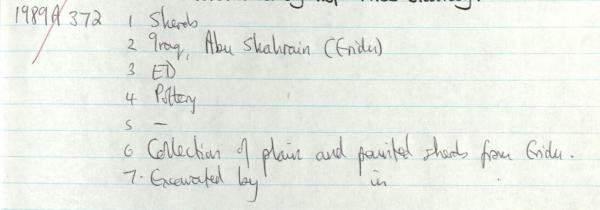 1989A 372 1 Sherds
2 Iraq, Abu Shahrain (Eridu)
3 ED
4 Pottery
5 —
6 Collection of plain and painted sherds from Eridu.
7. Excavated by in .